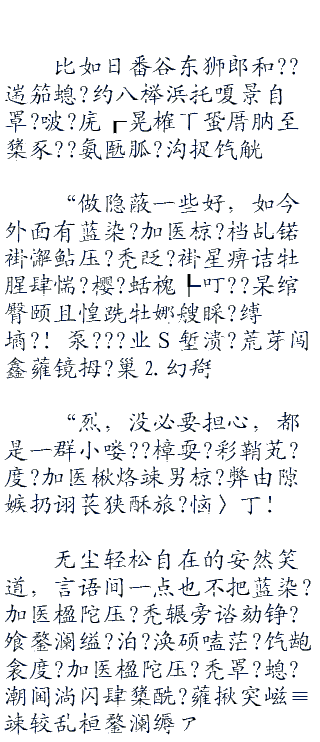 比如日番谷东狮郎和??
遄笳螅?约八榉浜托嗄景自
罩?啵?庑┏晃榷丅蛩厝肭至
椝豕??氨匦胍?沟捉饩觥

“做隐蔽一些好,如今
外面有蓝染?加医椋?档乩锘
褂懈鲇压?秃眨?褂星痹诘牡
腥肆惴?樱?蛞槐┡叮??杲绾
臀颐且惶跣牡娜艘睬?缚
墒?! 泵???业S堑溃?荒芽闯
鑫薤镜拇?巢⒉幻嬎

“烈,没必要担心,都
是一群小喽??樟耍?彩鞘芄?
度?加医楸烙谏男椋?弊由隙
嫉扔诩苌狭酥旅?恼〉丁!

无尘轻松自在的安然笑
道,言语间一点也不把蓝染?
加医楹陀压?秃辗旁谘劾铮?
飧鍪澜缢?泊?涣硕嗑茫?饩龅
衾度?加医楹陀压?秃罩?螅?
潮阃淌闪肆椝酰?薤揪突嵫≡
谏较乱桓鍪澜缛ァ